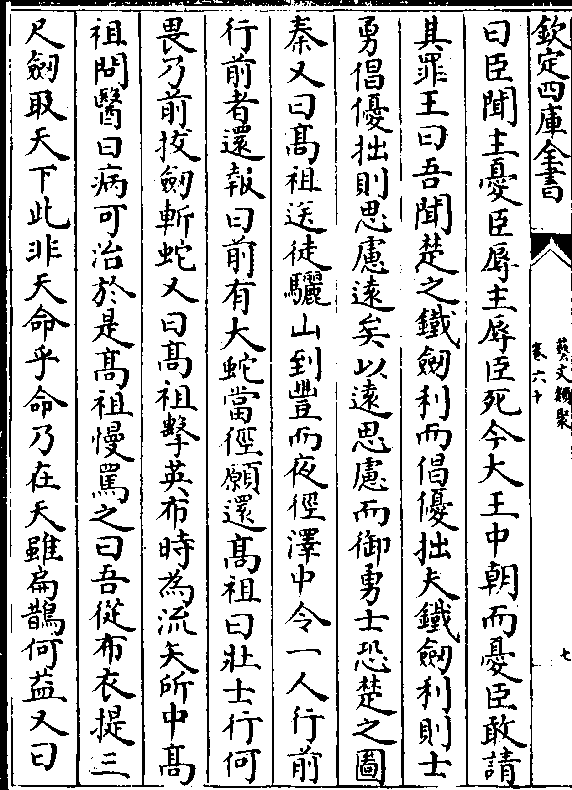 欽定四庫全書
藝文類聚
卷六十
七
曰臣聞主憂臣辱主辱臣死今大王中朝而憂臣敢請
其罪王曰吾聞楚之鐵劒利而倡優拙夫鐵劒利則士
勇倡優拙則思慮遠矣以遠思慮而御勇士恐楚之圖
秦又曰髙祖送徒驪山到豐而夜徑澤中令一人行前
行前者還報曰前有大蛇當徑願還髙祖曰壯士行何
畏乃前拔劒斬蛇又曰髙祖擊英布時為流矢所中髙
祖問醫曰病可治於是髙祖慢罵之曰吾從布衣提三
尺劒取天下此非天命乎命乃在天雖扁鵲何益又曰